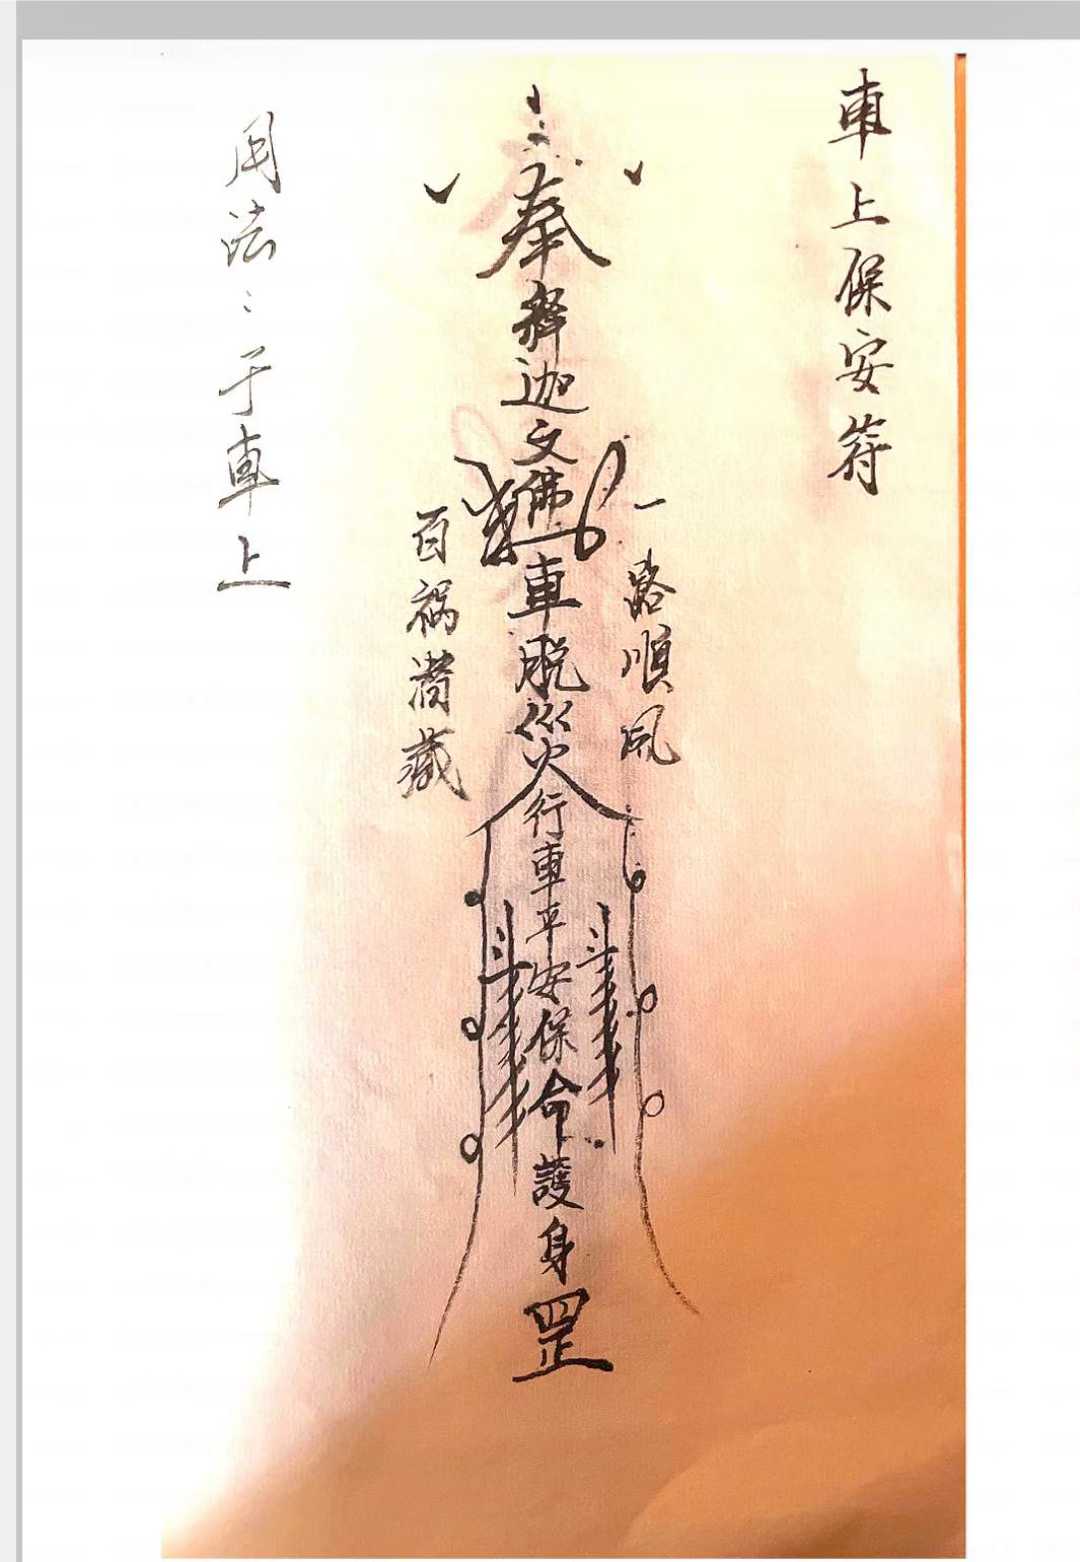 車上保安符
一路順風
奉釋迦文佛車脱災行車平安保命護身罡
百禍潛藏
用法：于車上